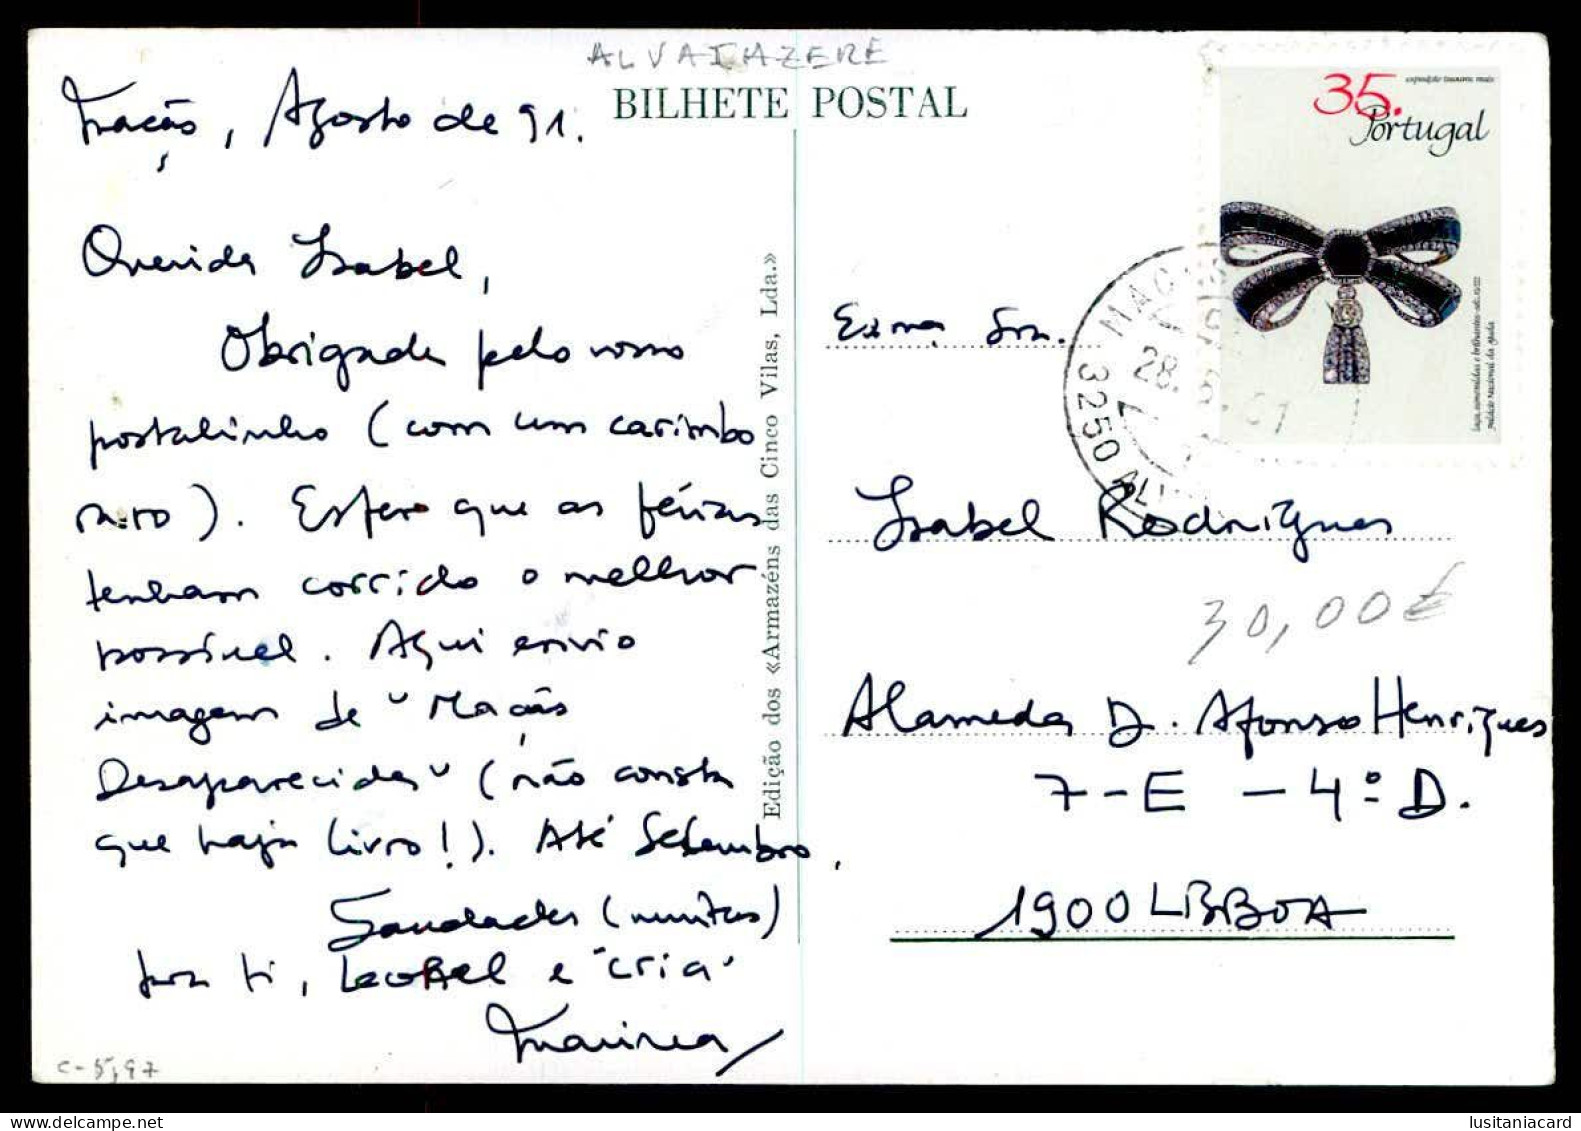 ALVAIAZERE
BILHETE POSTAL
Maçãs, Agosto de 91.
Querida Isabel,
Obrigada pelo vosso
postalinho (com um carimbo
raro). Espero que as férias
tenham corrido o melhor
possível. Aqui envio
imagem de "Maçãs
Desaparecida" (não consta
que haja livro!). Até Setembro,
Saudades (muitas)
para ti, Leonel e "cria"
Edição dos «Armazéns das Cinco Vilas, Lda.»
35.
Portugal
laço, esmeraldas e brilhantes-séc. XVIII
palácio nacional da ajuda
28.
3250 ALV
Exma. Sra.
Isabel Rodrigues
30,00€
Alameda D. Afonso Henriques
7-E - 4º D.
1900 LISBOA
C-5,97
lusitaniacard